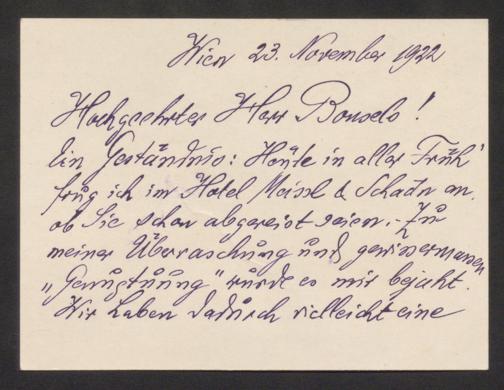 Wien 23. November 1922
Hochgeehrter Herr Bonsels!
Ein Geständnis: Heute in aller Früh'
frug ich im Hotel Meissl & Schadn an,
ob Sie schon abgereist seien. - Zu
meiner Überraschung und gewissermassen
„Genugtuung" wurde es mir bejaht.
Wir haben dadurch vielleicht eine